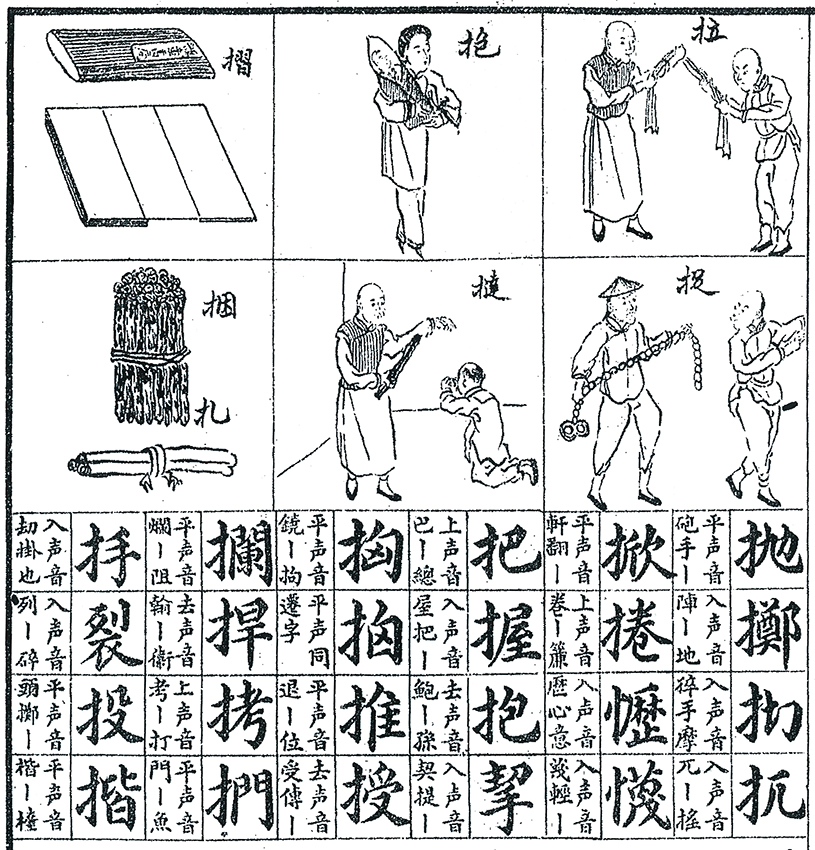 拉
抱
摺
捉
撻
捆
扎
抛
平声音
砲手丨
擲
入声音
陣丨地
入声音
碎手摩
扤
入声音
兀丨搖
掀
平声音
軒翻丨
捲
上声音
卷丨簾
入声音
歷心意
懱
入声音
蔑輕丨
把
上声音
巴丨總
握
入声音
屋把丨
抱
去声音
鮑丨孫
挈
入声音
契提丨
平声音
平声同
遷字
推
平声音
退丨位
授
去声音
受傳丨
攔
平声音
爛丨阻
捍
去声音
翰丨衛
拷
上声音
考丨打
捫
平声音
門丨魚
入声音
劫掛也
裂
入声音
列丨碎
投
平声音
頭擲丨
揩
平声音
楷丨檯